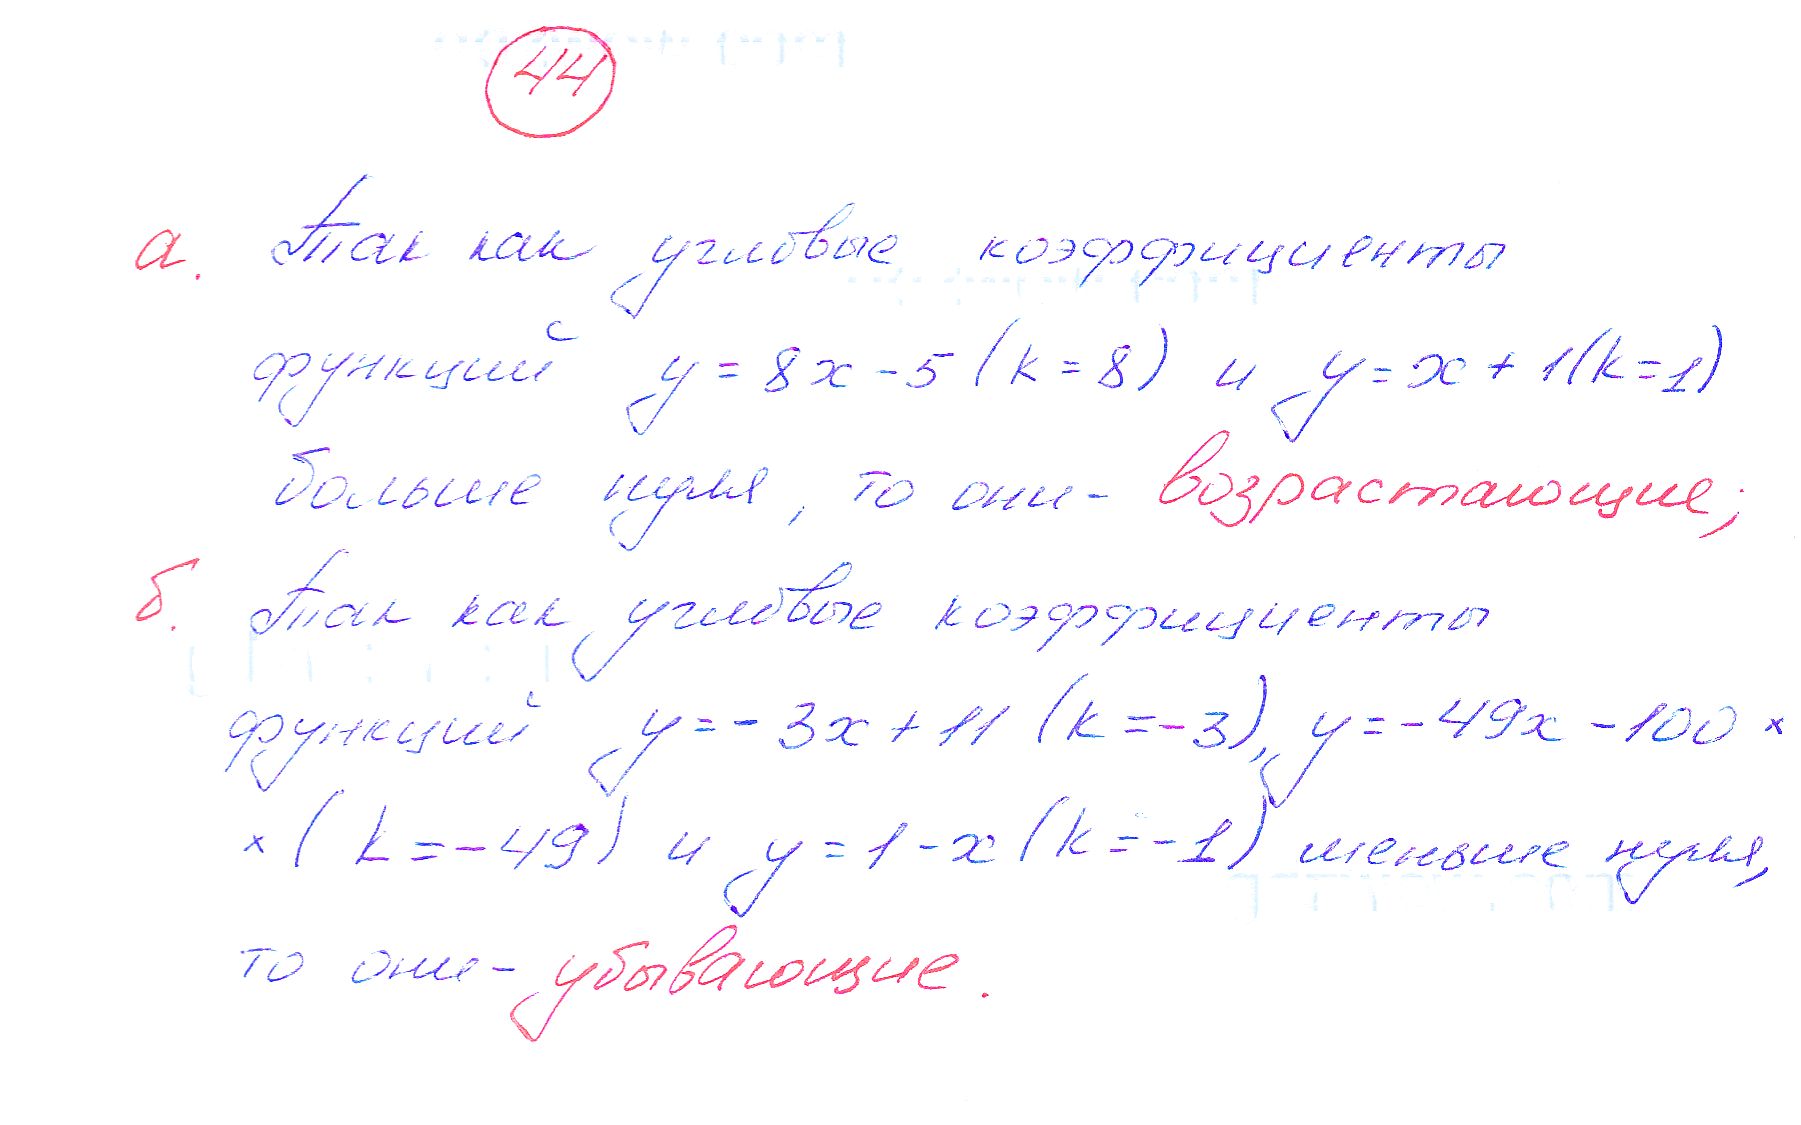 44
а. Так как угловые коэффициенты
функций y = 8x - 5 (k = 8) и y = x + 1 (k = 1)
больше нуля, то они - возрастающие;
б. Так как угловые коэффициенты
функций y = - 3x + 11 (k = - 3), y = - 49x - 100 ×
× ( k = - 49) и y = 1 - x (k = - 1) меньше нуля,
то они - убывающие.